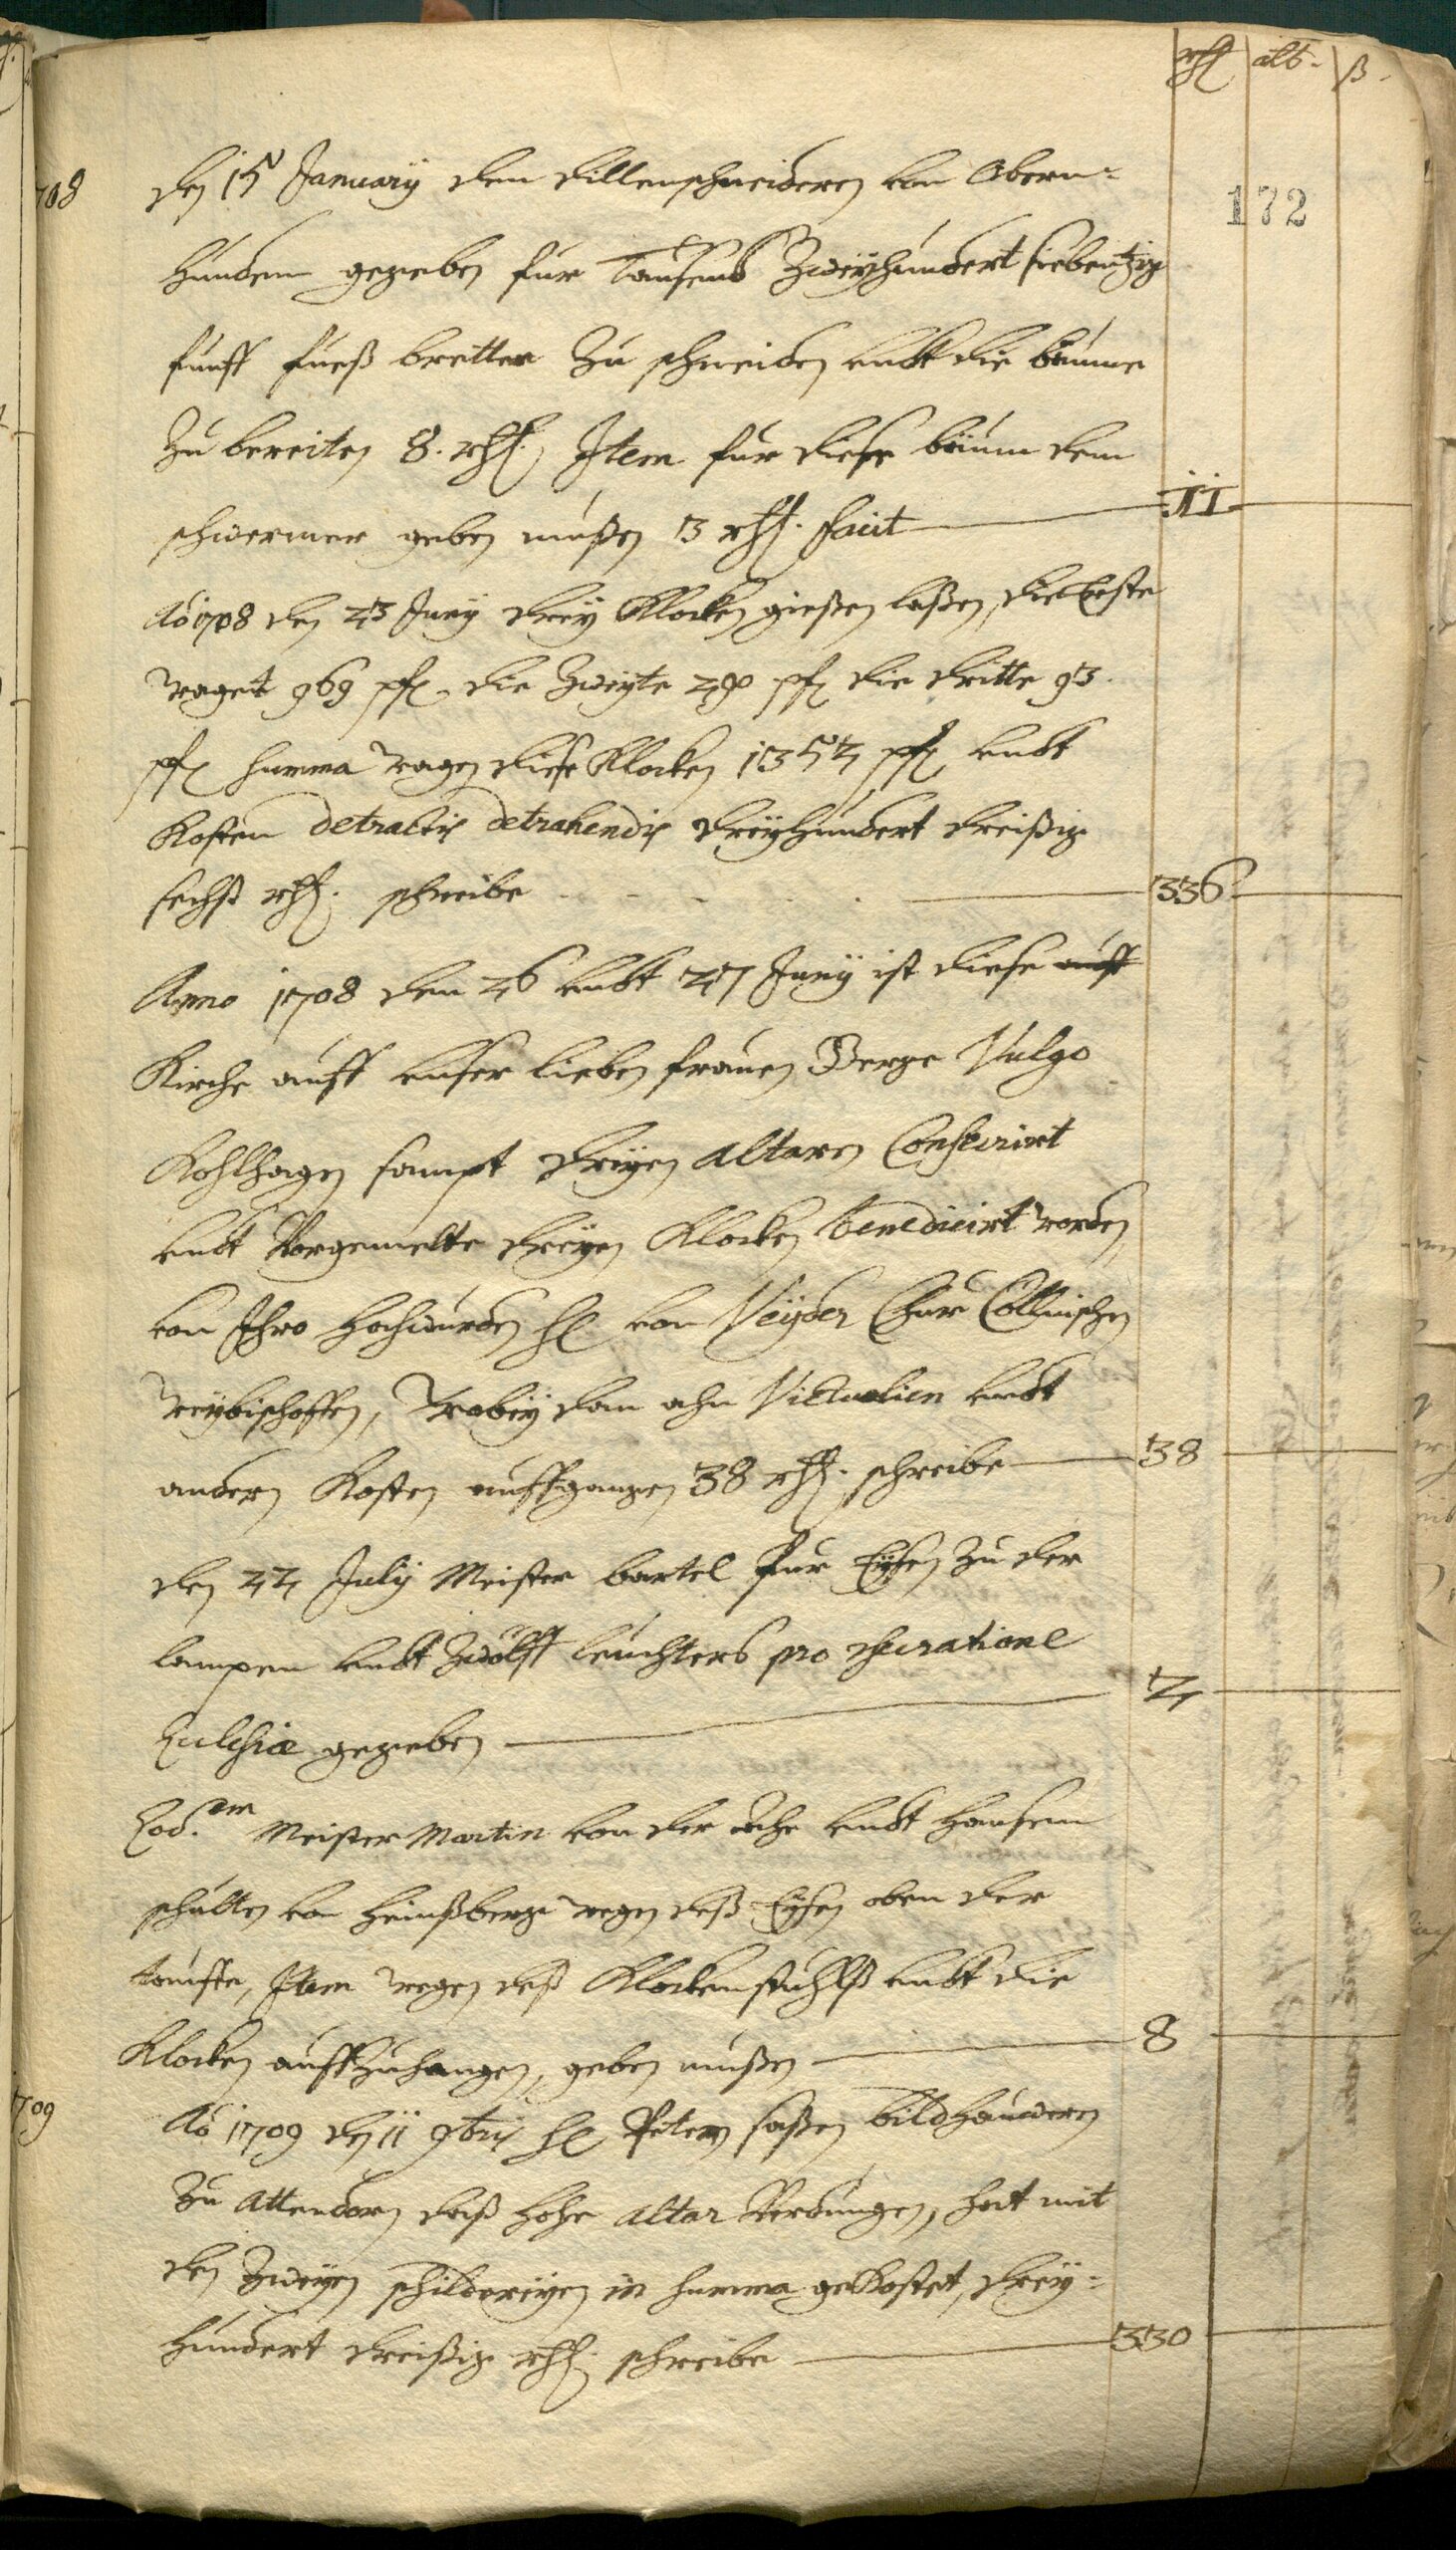 rthl alb. ß.
172
708 den 15 January den dillenschneideren von Obern=
hundem gegeben fur tausend Zweyhundert siebentzig
funff fueß bretter Zu schneiden undt die bäume
Zu bereiten 8. rthl. Item fur diese bäum dem
geben mußen 3 rthl. facit 11
Ao 1708 den 23 Juny drey Klocken gießen laßen, die Erste
waget 969 pf. die Zweyte 290 pf die dritte 93.
pf summa wagen diese Klocken 1352 pf undt
Kosten detractis detrahendis dreyhundert dreißig
sechß rthl. schreibe 336
Anno 1708 den 26 undt 27 Juny ist diese auff
Kirche auff unser lieben frauen Berge Vulgo
Kohlhagen sampt dreyen altaren Consecrirt
undt Vorgemelte dreyen Klocken benedicirt worden,
von Ihro hochwurden H von Veyder Chur Cöllnischen
weybischoffen, wobey dan ahn Victualien undt
andern Kosten auffgangen 38 rthl. schreibe 38
den 22 July Meister bartel fur Eysen Zu der
lampen undt Zwölff leuchters pro
Ecclesiæ gegeben 2
Eod.em Meister Martin von der ahe undt Hansen
schulten von Heinßberg wegen deß Eysen oben der
tauffe, Item wegen deß Klockenstuhlß undt die
Klocken auffzuhangen, geben mußen 8
1709 Ao 1709 den 11 9bris H Petern saßen bildhauweren
Zu Attendorn daß hohe altar Verdungen, hat mit
den Zweyen schildereyen in summa gekostet, drey=
hundert dreißig rthl. schreibe 330